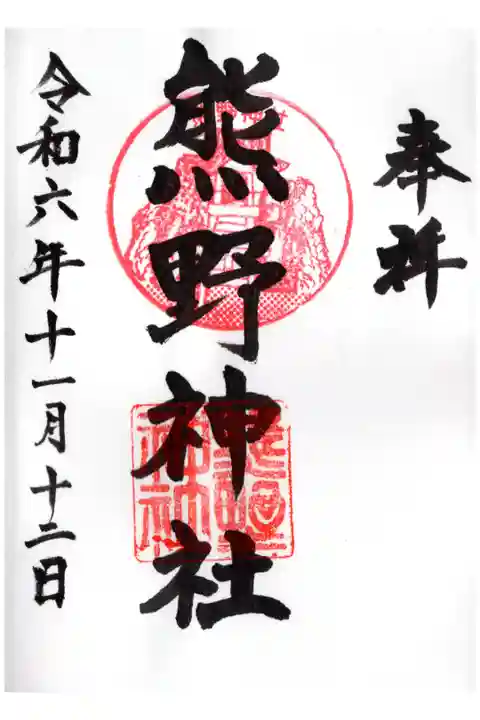 奉拝
熊野神社
令和六年十一月十二日